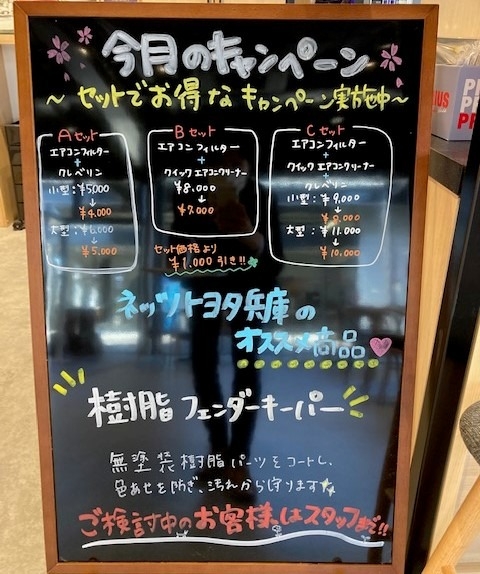 今月のキャンペーン
～セットでお得なキャンペーン実施中～
Aセット
エアコンフィルター
+
クレベリン
小型:¥5,000
↓
¥4,000
大型:¥6,000
↓
¥5,000
Bセット
エアコンフィルター
+
クイックエアコンクリーナー
¥8,000
↓
¥7,000
セット価格より
¥1,000引き!!
Cセット
エアコンフィルター
+
クイックエアコンクリーナー
+
クレベリン
小型:¥9,000
↓
¥8,000
大型:¥11,000
↓
¥10,000
ネッツトヨタ兵庫の
オススメ商品
樹脂フェンダーキーパー
無塗装樹脂パーツをコートし、
色あせを防ぎ、汚れから守ります
ご検討中のお客様はスタッフまで!!